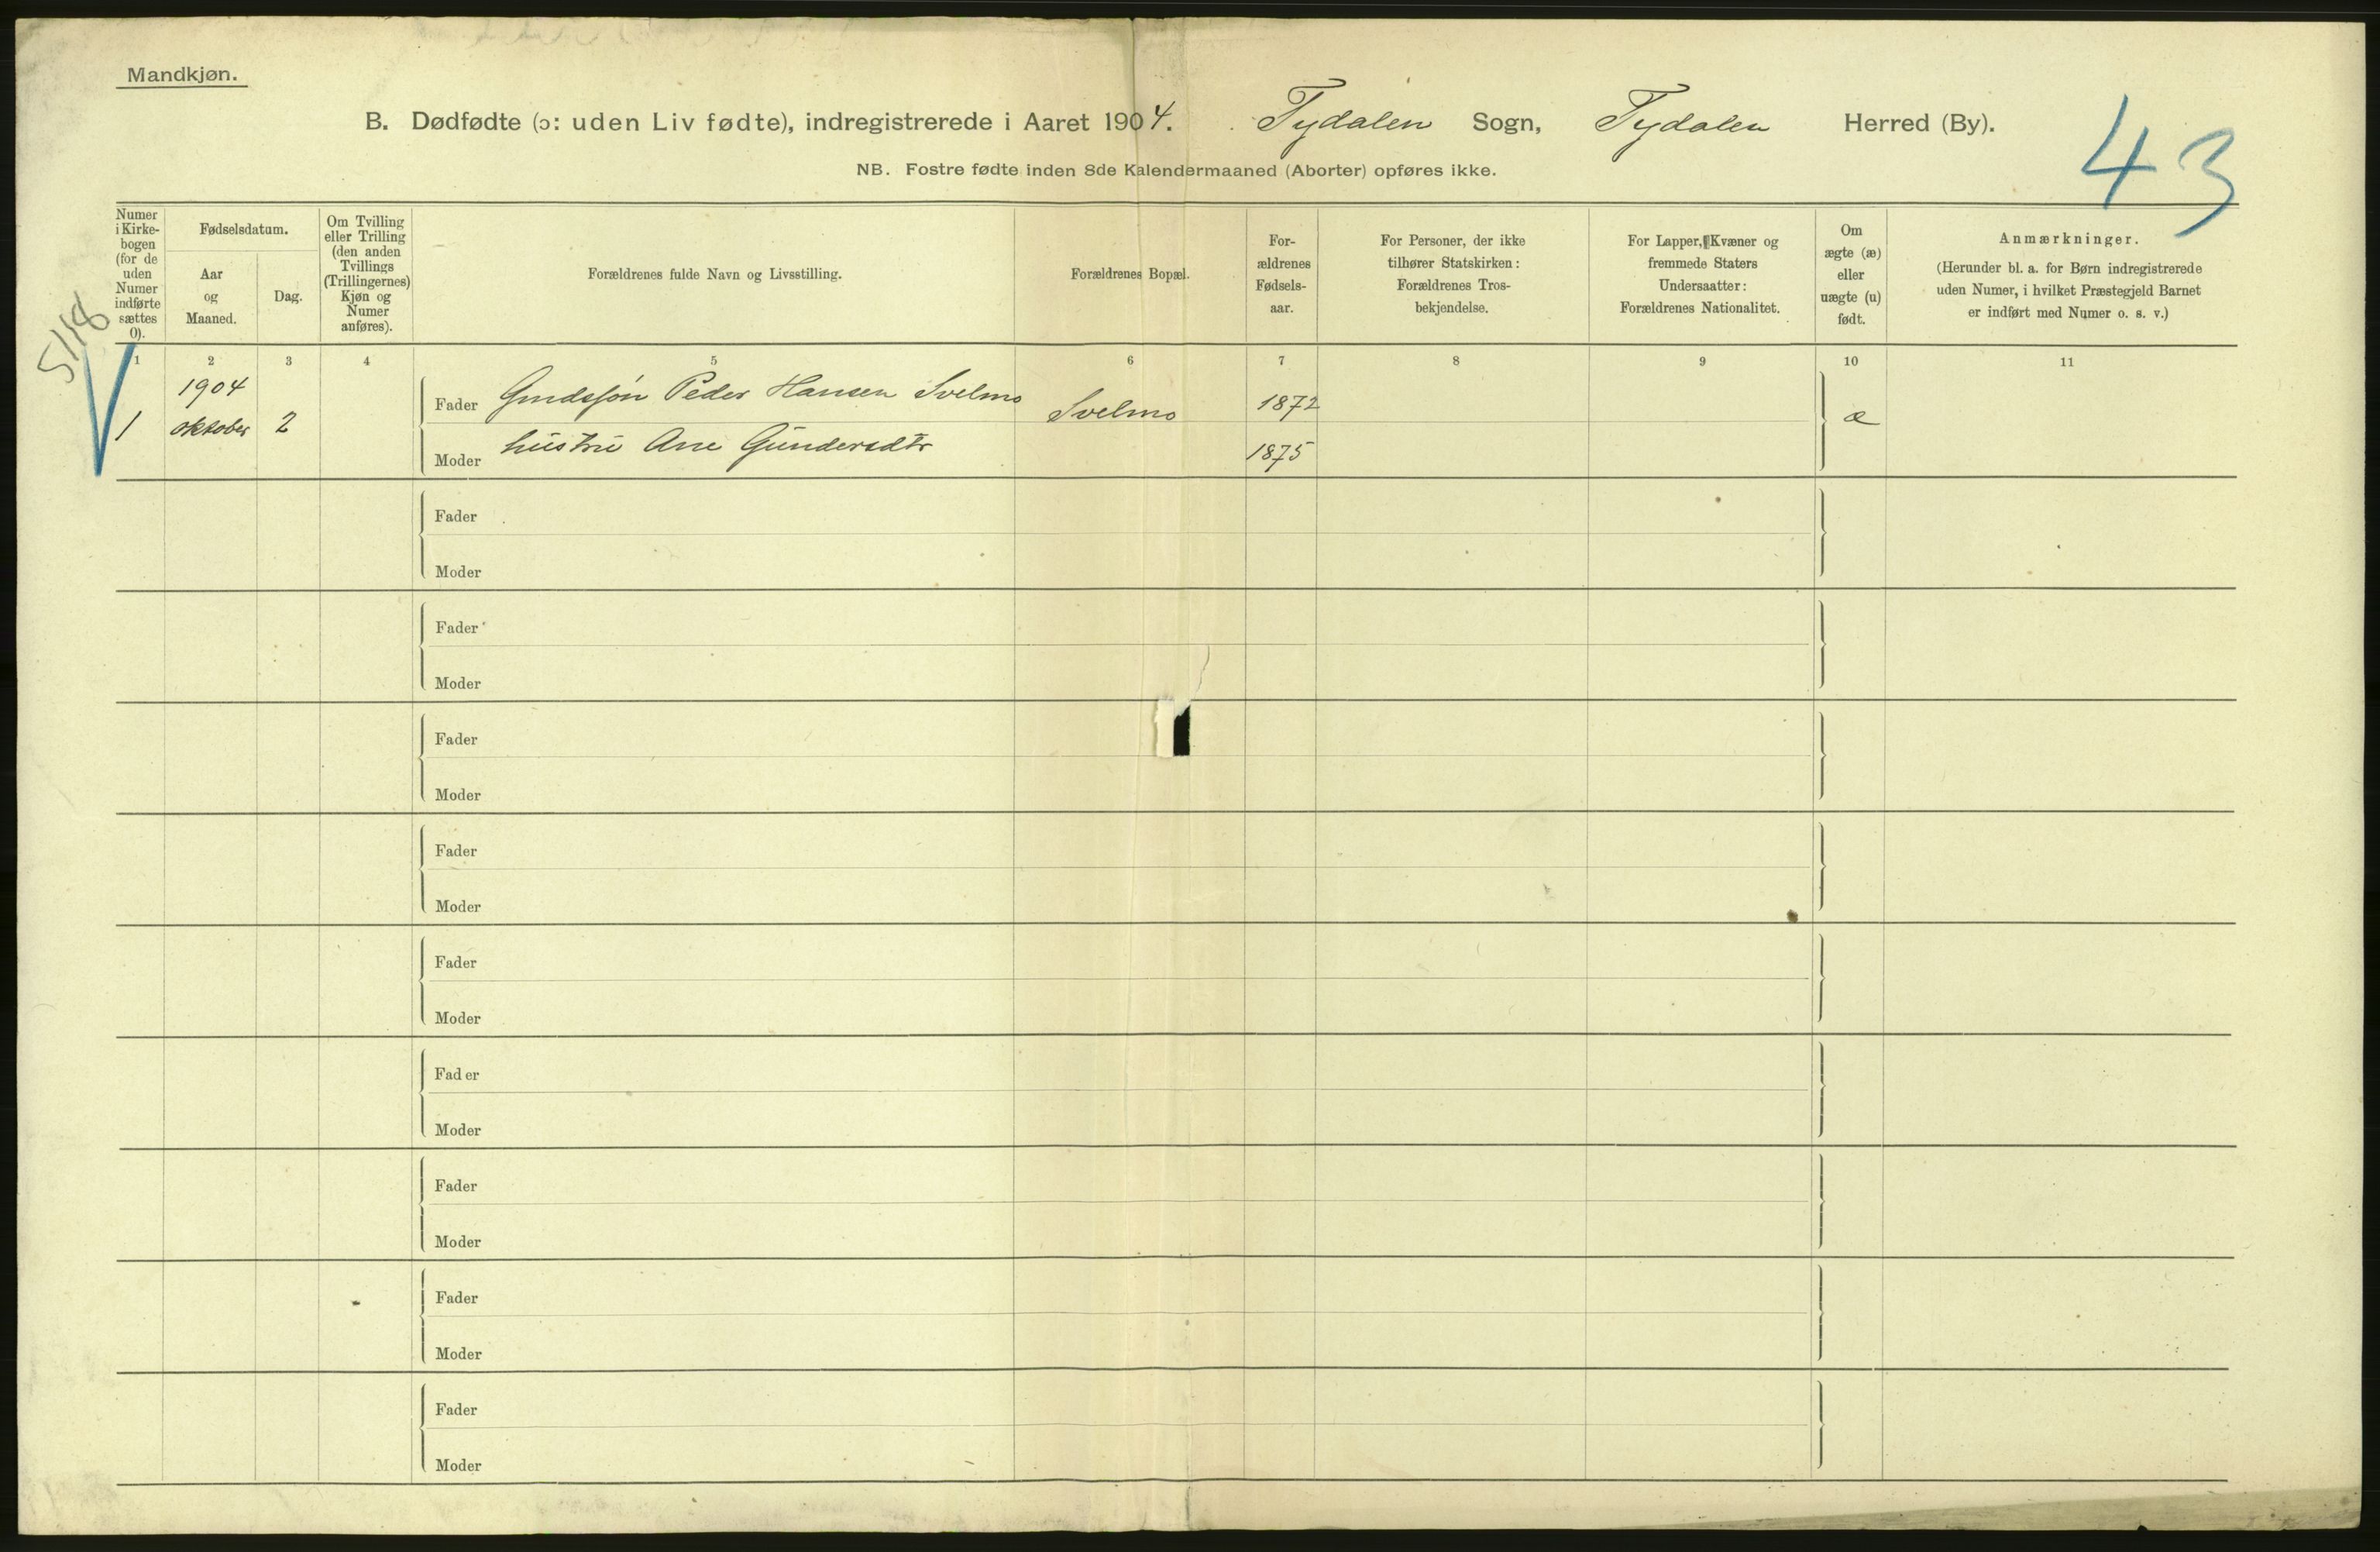 Mandkjøn.
B. Dødfødte (ɔ: uden Liv fødte), indregistrerede i Aaret 1904. Tydalen Sogn, Tydalen Herred (By).
43
NB. Fostre fødte inden 8de Kalendermaaned (Aborter) opføres ikke.
5118
Numer
i Kirke-
bogen
(for de
uden
Numer
indførte
sættes
0).
Fødselsdatum.
Aar
og
Maaned.
Dag.
Om Tvilling
eller Trilling
(den anden
Tvillings
(Trillingernes)
Kjøn og
Numer
anføres).
Forældrenes fulde Navn og Livsstilling.
Forældrenes Bopæl.
For-
ældrenes
Fødsels-
aar.
For Personer, der ikke
tilhører Statskirken:
Forældrenes Tros-
bekjendelse.
For Lapper, Kvæner og
fremmede Staters
Undersaatter:
Forældrenes Nationalitet.
Om
ægte (æ)
eller
uægte (u)
født.
Anmærkninger.
(Herunder bl. a. for Børn indregistrerede
uden Numer, i hvilket Præstegjeld Barnet
er indført med Numer o. s. v.)
1 2 3 4 5 6 7 8 9 10 11
1904
1 oktober 2
Fader Peder Hansen Svelmo Svelmo 1872 æ
Moder hustru Ane Gundersdtr 1875
Fader
Moder
Fader
Moder
Fader
Moder
Fader
Moder
Fader
Moder
Fader
Moder
Fader
Moder
Fader
Moder
Fader
Moder